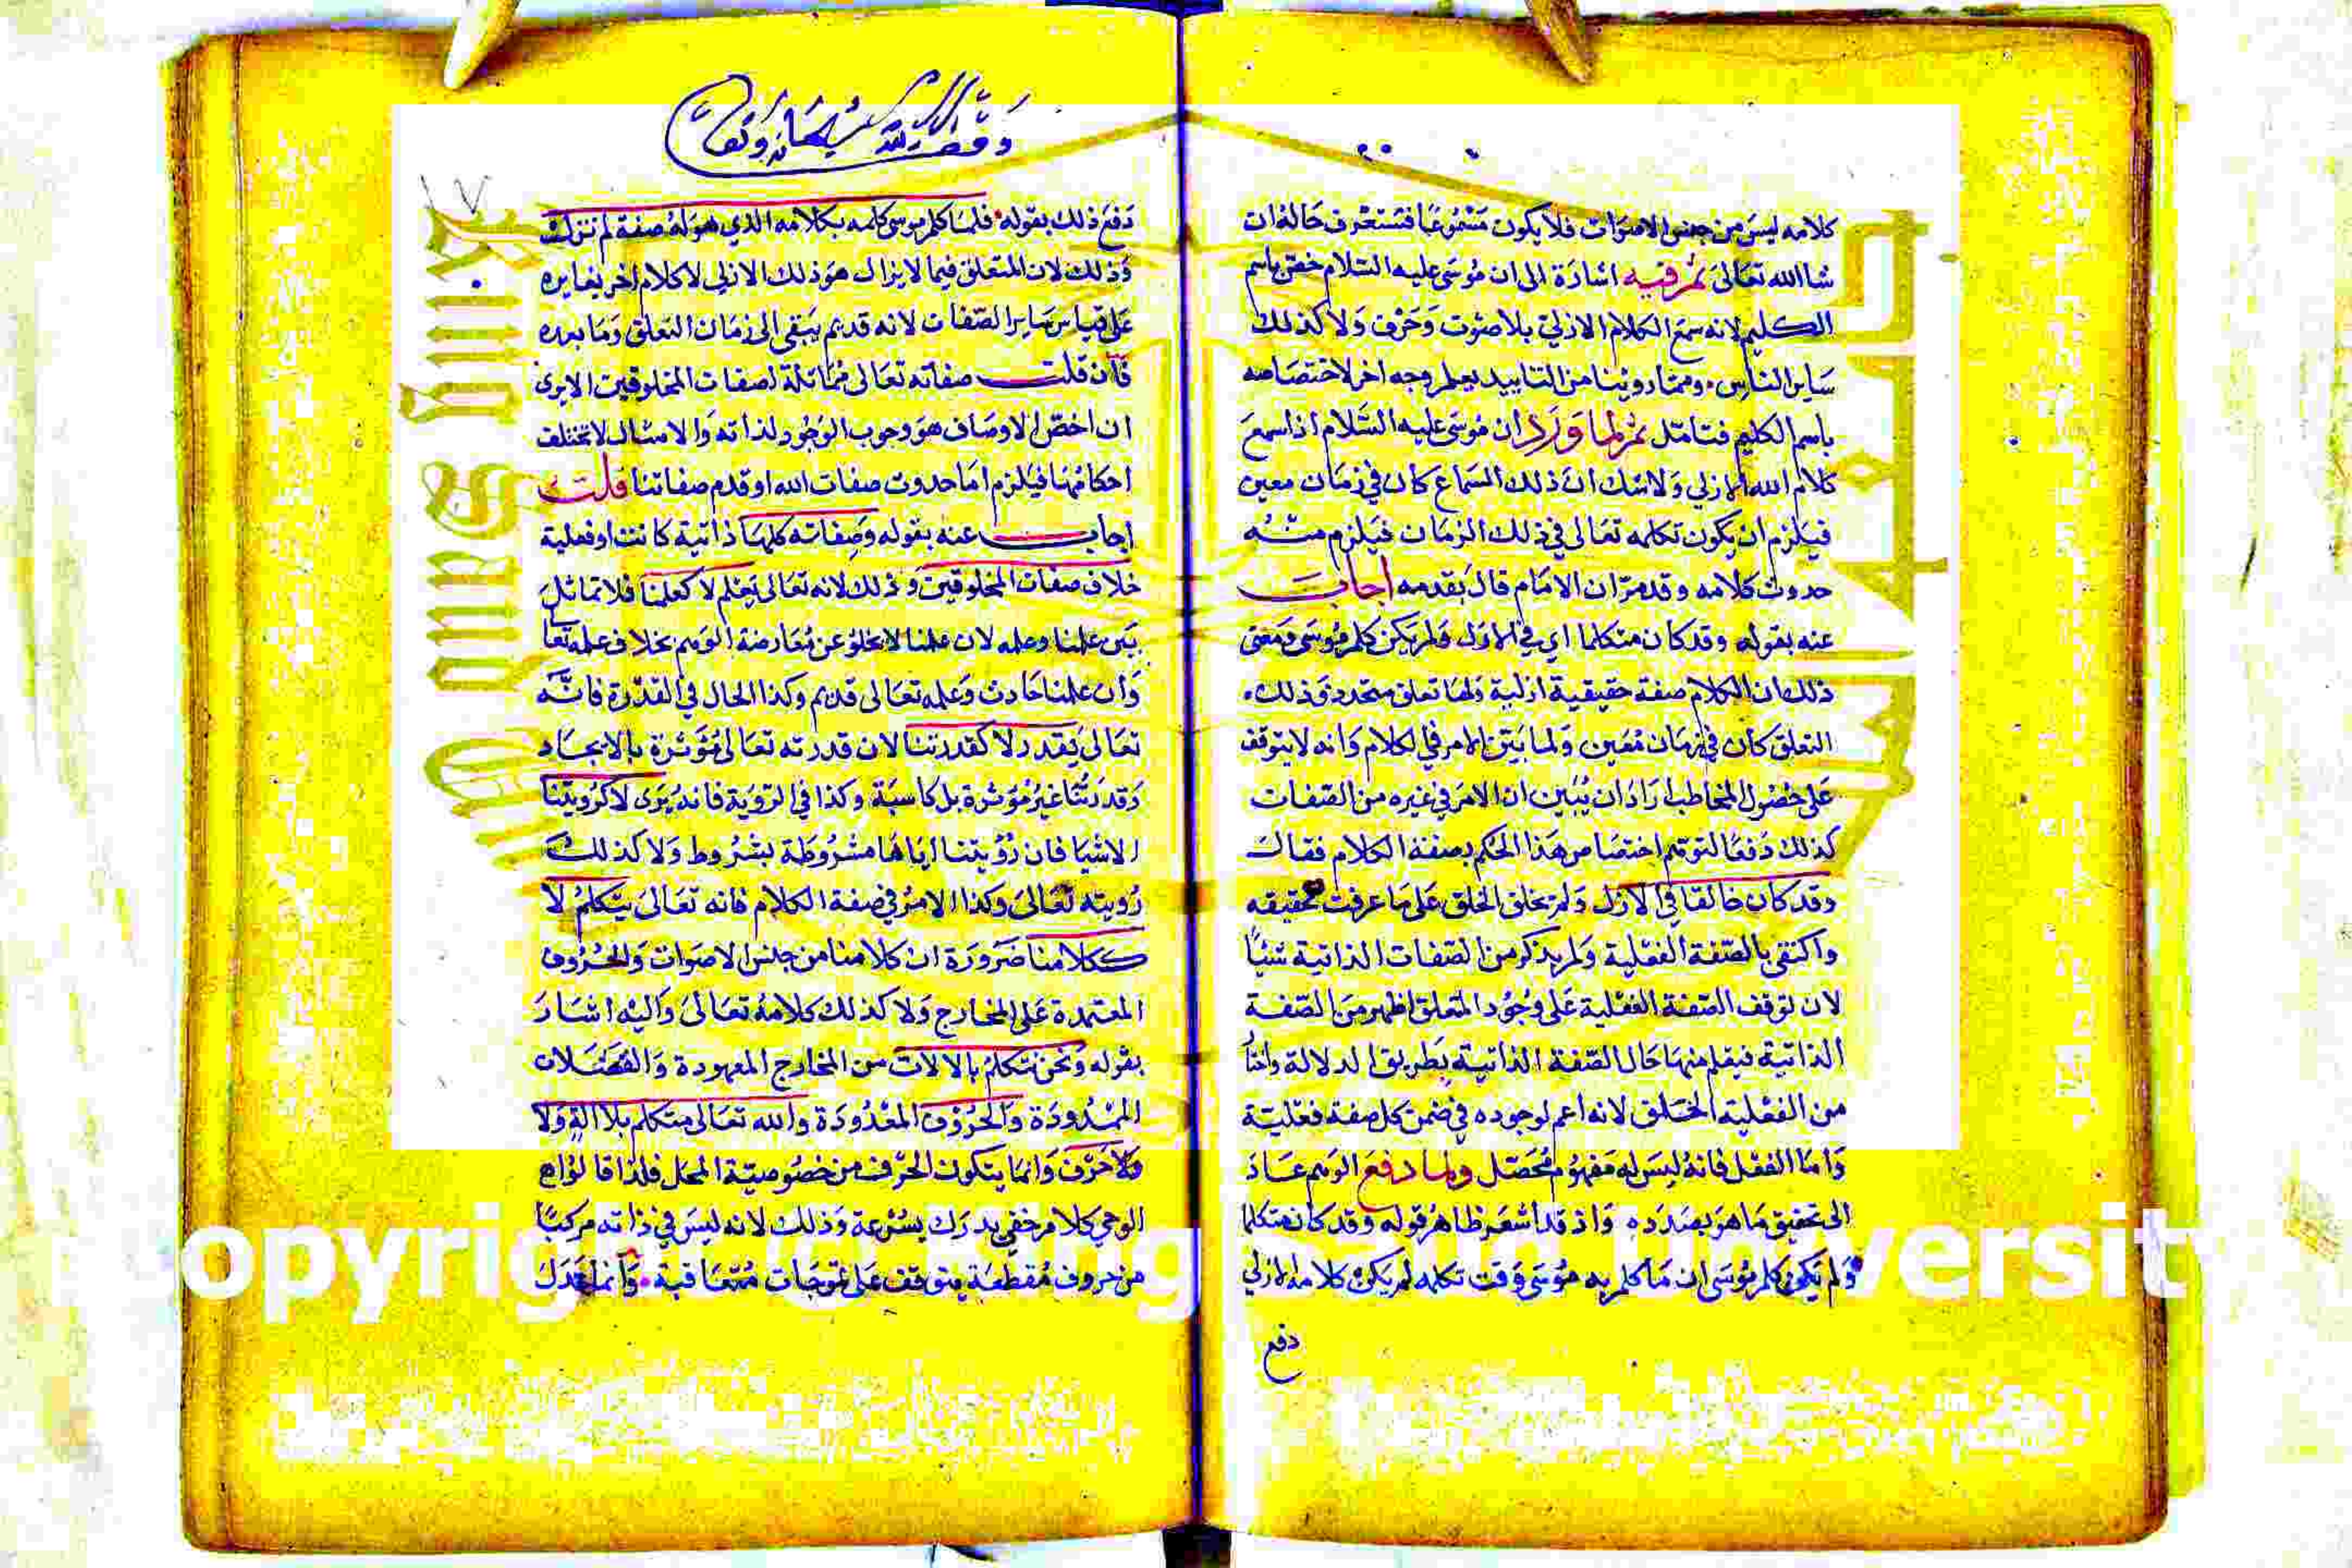 كلامه ليس من جنس الاصوات فلا يكون مسموعا فستعرف حاله ان
شا الله تعالى ثم فيه اشارة الى ان موسى عليه السلام خص باسم
الكليم لانه سمع الكلام الازلي بلا صوت وحرف ولا كذلك
ساير الناس ومما روينا من التاييد يعلم وجه اخر لاختصاصه
باسم الكليم فتامل ثم لما ورد ان موسى عليه السلام اذا سمع
كلام الله الازلي ولا شك ان ذلك السماع كان في زمان معين
فيلزم ان يكون تكلمه تعالى في ذلك الزمان فيلزم منه
حدوث كلامه وقد مر ان الامام قال بقدمه اجاب
عنه بقوله وقد كان متكلما اي في الازل ولم يكن كلم موسى ومعنى
ذلك ان الكلام صفة حقيقية ازلية ولها تعلق متجدد وذلك
التعلق كان في زمان معين ولما بين الامر في الكلام وانه لا يتوقف
على حضول المخاطب اراد ان يبين ان الامر في غيره من الصفات
كذلك دفعا لتوهم اختصاص هذا الحكم بصفة الكلام فقال
وقد كان خالقا في الازل ولم يخلق الخلق على ما عرفت تحقيقه
واكتفى بالصفة الفعلية ولم يذكر من الصفات الذاتية شيئا
لان توقف الصفة الفعلية على وجود المتعلق اظهر من الصفة
الذاتية فيعلم منها حال الصفة الذاتية بطريق الدلالة واختا
من الفعلية الخلق لانه اعم لوجوده في ضمن كل صفة فعلية
واما الفعل فانه ليس له مفهوم محصل ولما دفع الوهم عاد
الى تحقيق ما هو بصدده واذ قد اشعر ظاهر قوله وقد كان متكلما
ولم يكن كلم موسى ان ما كلم به موسى وقت تكلمه لم يكن كلامه الازلي
دفع
وقف لله سبحانه وتعالى
دفع ذلك بقوله فلما كلم موسى كلمه بكلامه الذي هو له صفة لم تزل
وذلك لان المتعلق فيما لا يزال هو ذلك الازلي لا كلام اخر يغايره
على قياس ساير الصفات لانه قديم يبقى الى زمان التعلق وما بعده
فان قلت صفاته تعالى مماثلة لصفات المخلوقين الا يرى
ان اخص الاوصاف هو وجوب الوجود لذاته والامثال لا تختلف
احكامها فيلزم اما حدوث صفات الله او قدم صفاتنا قلت
اجاب عنه بقوله وصفاته كلها ذاتية كانت او فعلية
خلاف صفات المخلوقين وذلك لانه تعالى يعلم لا كعلمنا فلا تماثل
بين علمنا وعلمه لان علمنا لا يخلو عن معارضة الوهم بخلاف علمه تعا
وان علمنا حادث وعلمه تعالى قديم وكذا الحال في القدرة فانه
تعالى يقدر لا كقدرتنا لان قدرته تعالى مؤثرة بالايجاد
وقدرتنا غير مؤثرة بل كاسبة وكذا في الروية فانه يرى لا كرويتنا
الاشيا فان رؤيتنا اياها مشروطة بشروط ولا كذلك
رويته تعالى وكذا الامر في صفة الكلام فانه تعالى يتكلم لا
ككلامنا ضرورة ان كلامنا من جنس الاصوات والحروف
المعتمدة على المخارج ولا كذلك كلامه تعالى واليه اشار
بقوله ونحن نتكلم بالالات من المخارج المعهودة والعضلات
الممدودة والحروف المعدودة والله تعالى متكلم بلا الة ولا
ولا حرف وانما يتكون الحرف من خصوصية المحل فلذا قالوا ان
الوحي كلام خفي يدرك بسرعة وذلك لانه ليس في ذاته مركبا
من حروف مقطعة يتوقف على تموجات متعاقبة وانما عدل
Copyright © King Saud University